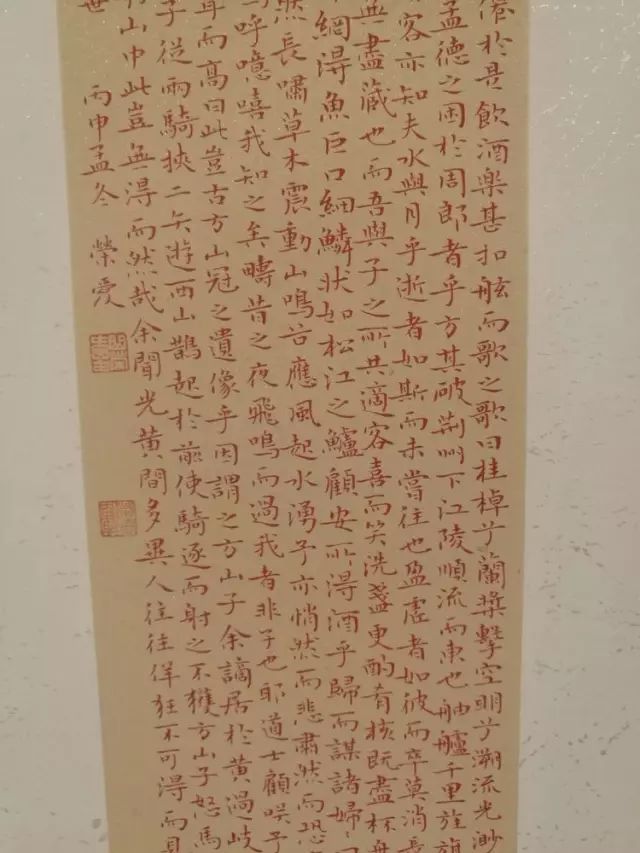 僊於是飲酒樂甚扣舷而歌之歌曰桂棹兮蘭槳擊空明兮溯流光渺
孟德之困於周郎者乎方其破荆州下江陵順流而東也舳艫千里旌旗
客亦知夫水與月乎逝者如斯而未嘗往也盈虛者如彼而卒莫消長
無盡藏也而吾與子之所共適客喜而笑洗盞更酌肴核既盡杯
網得魚巨口細鱗狀如松江之鱸顧安所得酒乎歸而謀諸婦
然長嘯草木震動山鳴谷應風起水湧予亦悄然而悲肅然而恐
嗚呼噫嘻我知之矣疇昔之夜飛鳴而過我者非子也耶道士顧咲予
聳而高曰此豈古方山冠之遺像乎因謂之方山子余謫居於黃過岐
子從兩騎挾二矢遊西山鵲起於前使騎逐而射之不獲方山子怒馬
山中此豈無得而然哉余聞光黃間多異人往往佯狂不可得而見
世
丙申孟冬 榮愛